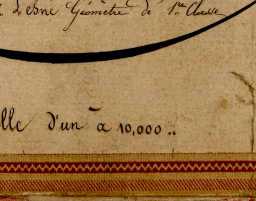 Lesne Géomètre de 1re Classe
lle d'un à 10,000..